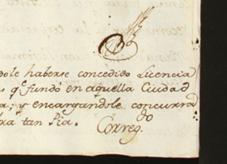 dole haberse concedido Licencia
s q.e fundó en aquella Ciudad
a; y encargandole concurra
tan Pia. Correg.do